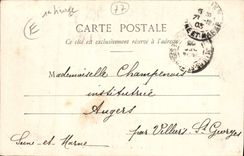 77
E
CARTE POSTALE
Ce côté est exclusivement réservé à l'adresse
Mademoiselle Champenois
institutrice
Augers
par Villiers St Georges
Seine et Marne